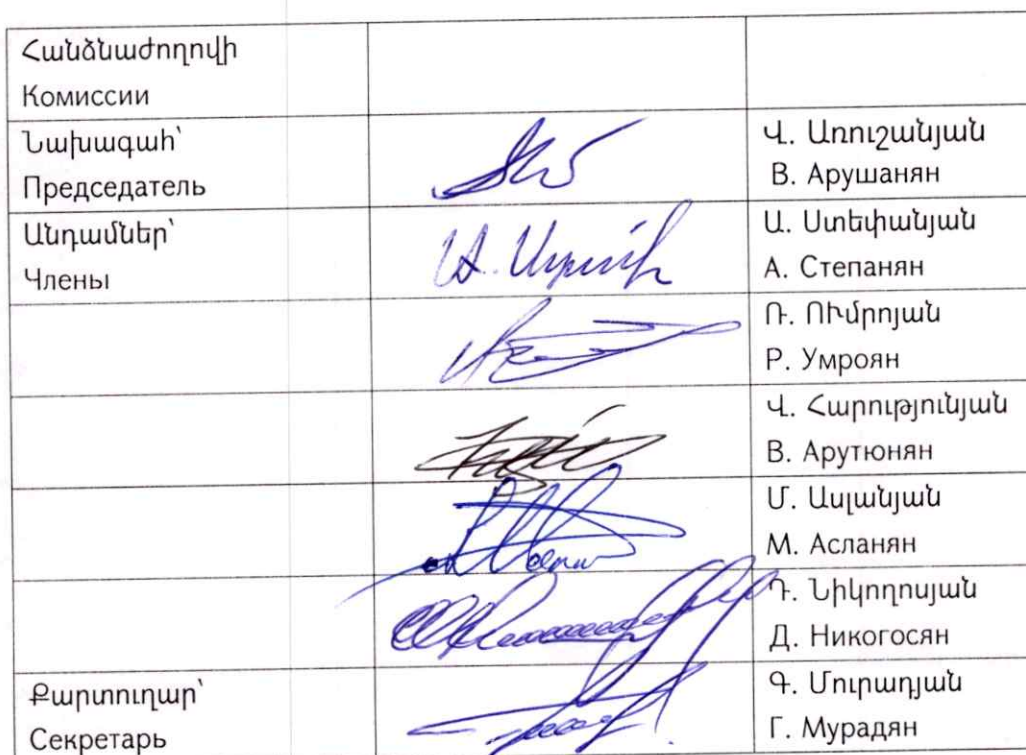 Հանձնաժողովի
Комиссии
Նախագահ՝
Председатель
Վ. Առուշանյան
В. Арушанян
Անդամներ՝
Члены
Ա. Ստեփանյան
А. Степанян
Ռ. ՈՒմրոյան
Р. Умроян
Վ. Հարությունյան
В. Арутюнян
Մ. Ասլանյան
М. Асланян
Դ. Նիկողոսյան
Д. Никогосян
Քարտուղար՝
Секретарь
Գ. Մուրադյան
Г. Мурадян